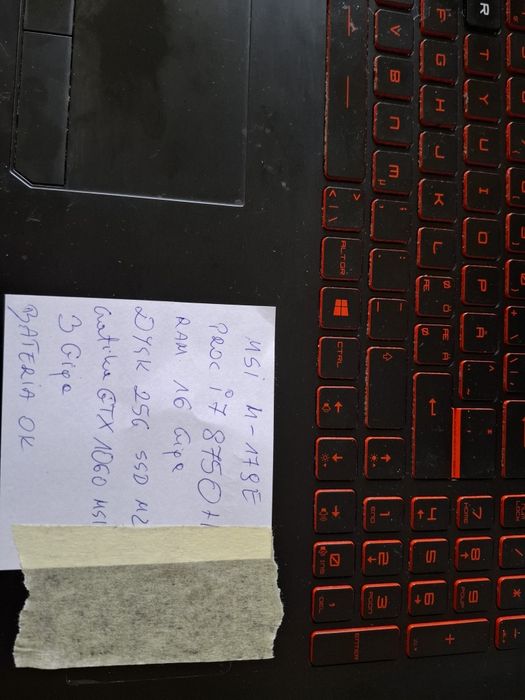 MSI M-178E
PROC i7 8750H
RAM 16 Giga
DYSK 256 SSD M2
Grafika GTX 1060 MSI
3 Giga
BATERIA OK
R
F G H J K L Ø Ö Æ Æ Ä Ø
T Y U I O P Å
V B N M µ ; , : .
< > \
ALTGR
CTRL
7 HOME 8 9 PGUP
4 5 6 +
1 END 2 3 PGDN
0 INS , DEL ENTER
/ * -